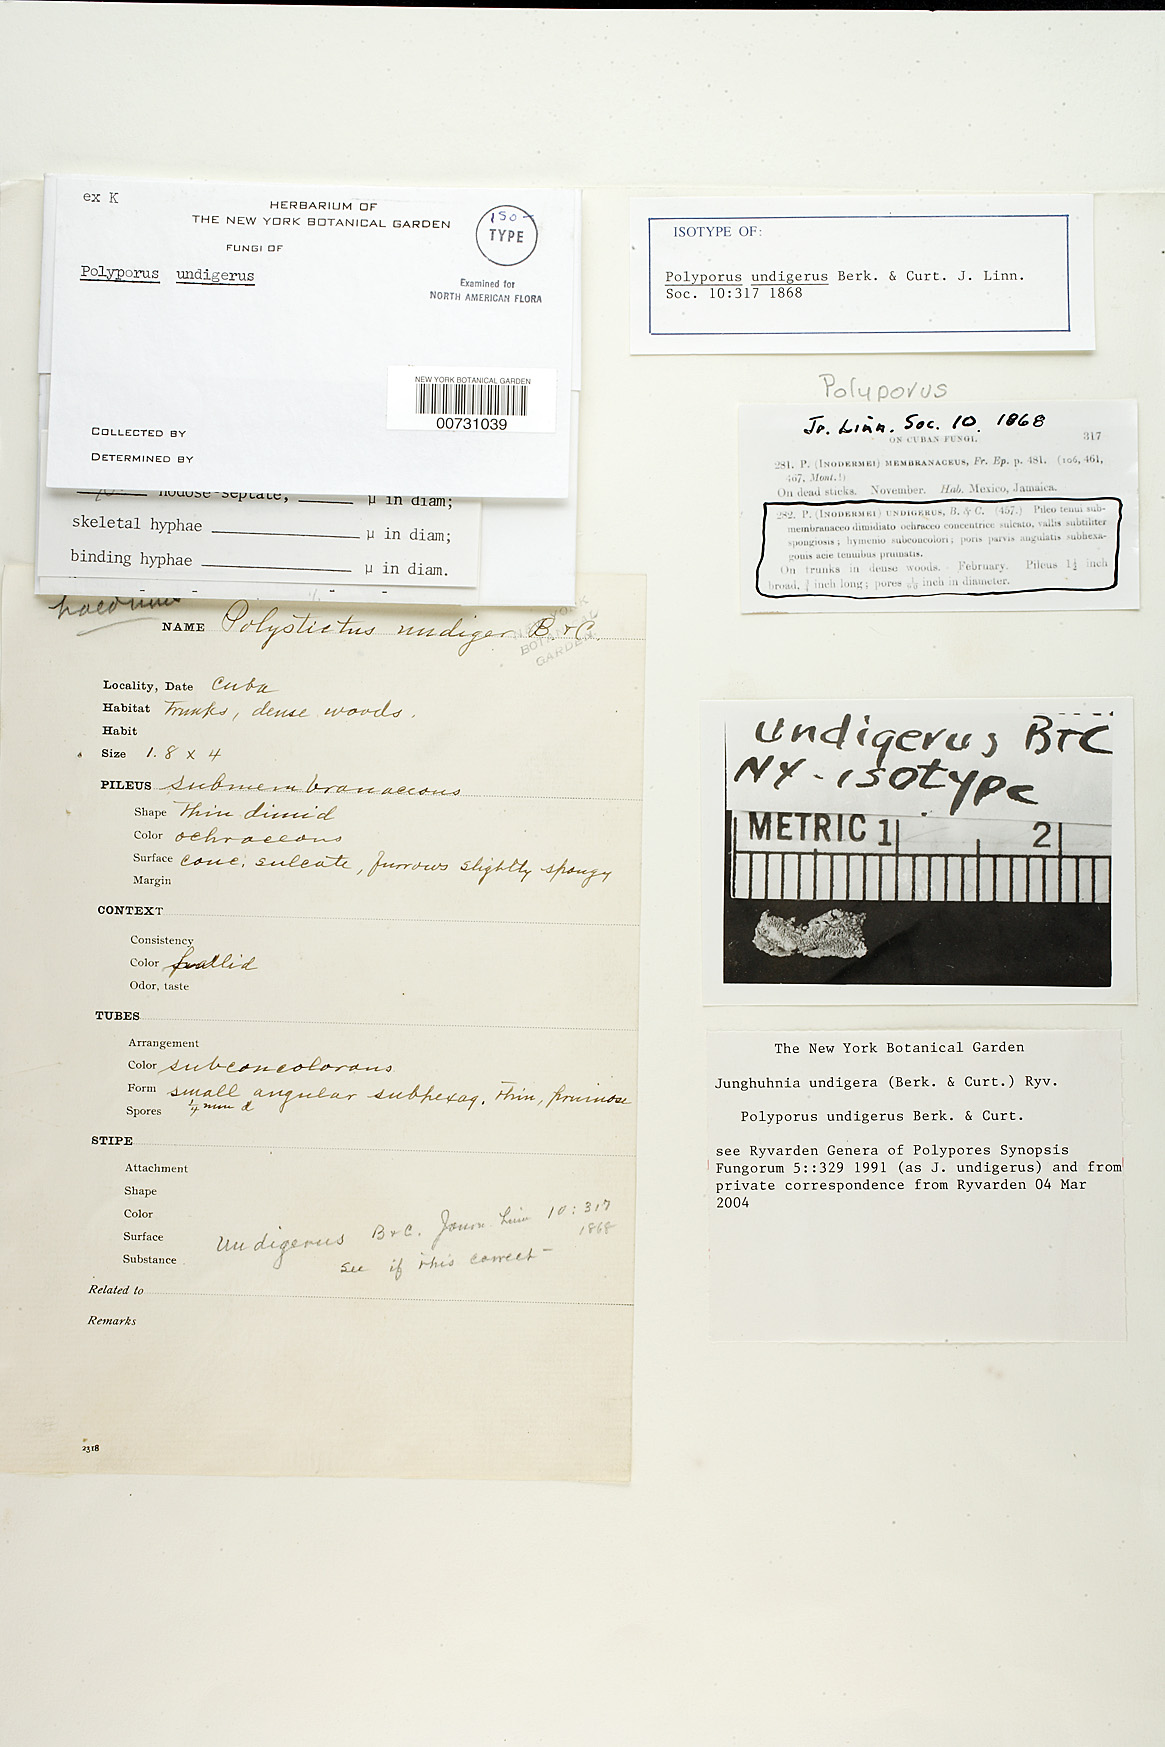 ex K
HERBARIUM OF
THE NEW YORK BOTANICAL GARDEN
FUNGI OF
Polyporus undigerus
ISO-
TYPE
Examined for
NORTH AMERICAN FLORA
NEW YORK BOTANICAL GARDEN
00731039
COLLECTED BY
DETERMINED BY
nodose-septate, ______ µ in diam;
skeletal hyphae ______ µ in diam;
binding hyphae ______ µ in diam.
NAME Polystictus undiger B. & C.
NEW YORK
BOTANICAL
GARDEN
Locality, Date Cuba
Habitat Trunks, dense woods.
Habit
Size 1.8 x 4
PILEUS submembranaceous
Shape Thin dimid
Color ochraceous
Surface conc. sulcate, furrows slightly spongy
Margin
CONTEXT
Consistency
Color pallid
Odor, taste
TUBES
Arrangement
Color subconcolorous
Form small angular subhexag. thin, pruinose
Spores 1/4 mm d
STIPE
Attachment
Shape
Color
Surface
Substance
Undigerus B & C. Journ. Linn 10:317
1868
See if this correct -
Related to
Remarks
2318
ISOTYPE OF:
Polyporus undigerus Berk. & Curt. J. Linn.
Soc. 10:317 1868
Polyporus
Jr. Linn. Soc. 10. 1868
ON CUBAN FUNGI. 317
281. P. (INODERMEI) MEMBRANACEUS, Fr. Ep. p. 481. (106, 461,
467, Mont.!)
On dead sticks. November. Hab. Mexico, Jamaica.
282. P. (INODERMEI) UNDIGERUS, B. & C. (457.) Pileo tenui sub-
membranaceo dimidiato ochraceo concentrice sulcato, vallis subtiliter
spongiosis; hymenio subconcolori; poris parvis angulatis subhexa-
gonis acie tenuibus pruinatis.
On trunks in dense woods. February. Pileus 1½ inch
broad, inch long; pores inch in diameter.
undigerus B+C
NY-isotype
METRIC 1 2
The New York Botanical Garden
Junghuhnia undigera (Berk. & Curt.) Ryv.
Polyporus undigerus Berk. & Curt.
see Ryvarden Genera of Polypores Synopsis
Fungorum 5::329 1991 (as J. undigerus) and from
private correspondence from Ryvarden 04 Mar
2004